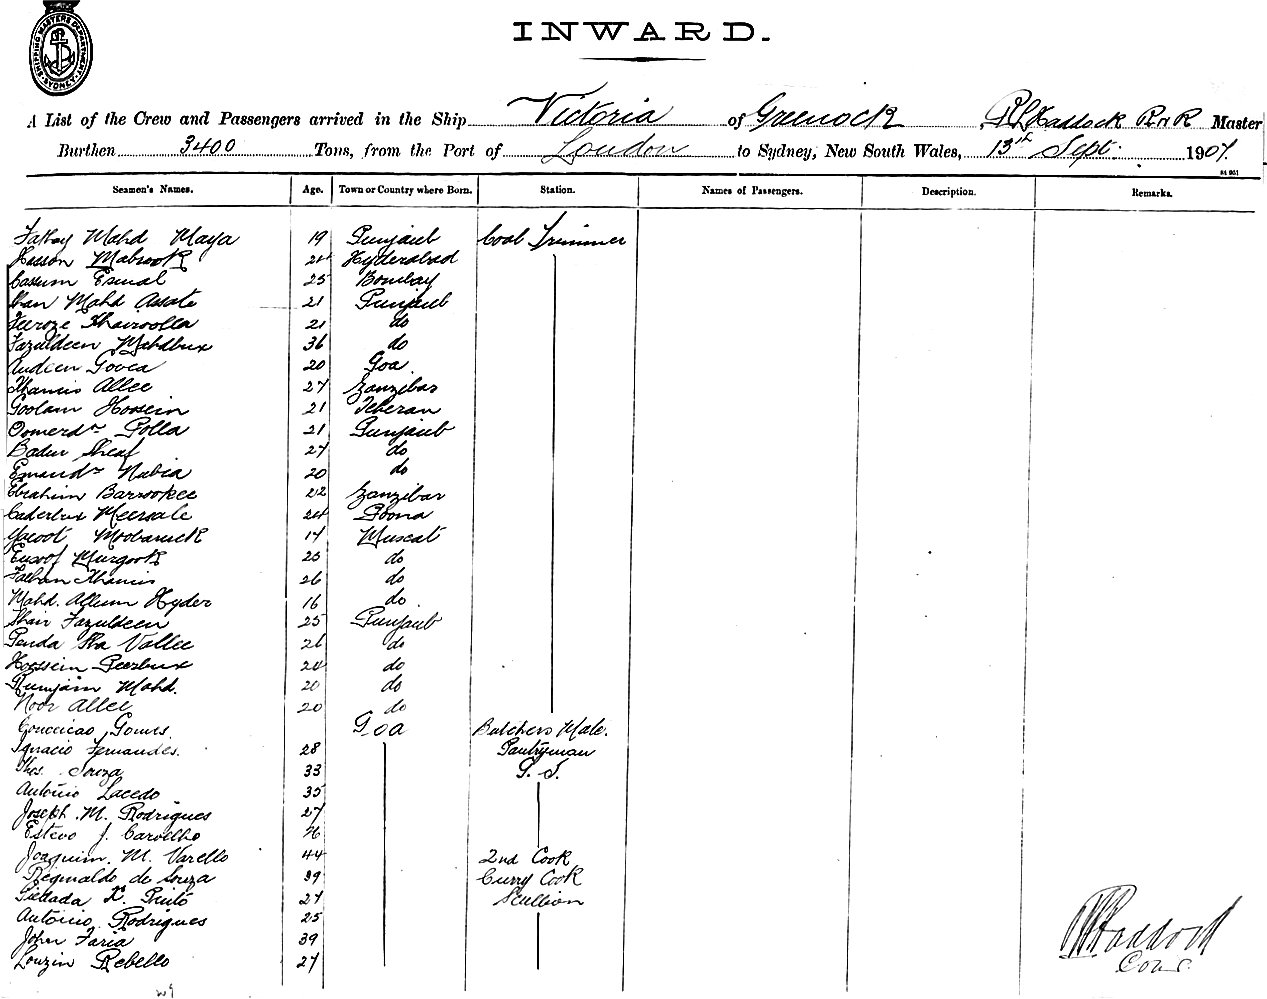 SHIPPING MASTERS DEPARTMENT SYDNEY
INWARD.
A List of the Crew and Passengers arrived in the Ship Victoria of Greenock, Haddock R N R Master
Burthen 3400 Tons, from the Port of London to Sydney, New South Wales, 13th Sept. 1907.
Seamen's Names. Age. Town or Country where Born. Station. Names of Passengers. Description. Remarks.
Mahd Maya 19 Punjaub Coal Trimmer
Hasson Mabrook 24 Hyderabad
Cassum Esmal 25 Bombay
Mahd Assate 21 Punjaub
Feeroze Khairoolla 21 do
Fazuldeen Mahdbux 36 do
20 Goa.
Khamis Allee 27 Zanzibar
Goolam Hossein 21 Teheran
Oomerdn Golla 21 Punjaub
Badur 27 do
Emamdn Nabia 20 do
Ebrahim Barrookee 22 Zanzibar
Caderbux Meersale 24 Poona
Yacoot Moobaruck 17 Muscat
Eusoof Murgook 25 do
Farhan Khamis 26 do
Mahd. Allum Hyder 16 do
Shair Fazuldeen 25 Punjaub
Penda Sha Vallee 26 do
Hoossein Peerbux 24 do
Rumjan Mahd. 20 do
Noor Allee 20 do
Conceicao Gomes. Goa Butchers Mate.
Ignacio Fernandes. 28 Pantryman
Thos. Souza 33 G. S.
Antonio Lacedo 35
Joseph. M. Rodrigues 27
Estevo J. Carvelho
Joaquim. M. Varello 44 2nd Cook
Reginaldo de Souza 39 Curry Cook
Piedada X. Pinto 27 Scullion
Antonio Rodrigues 25
John Faria 39
Louzin Rebello 27
Haddock